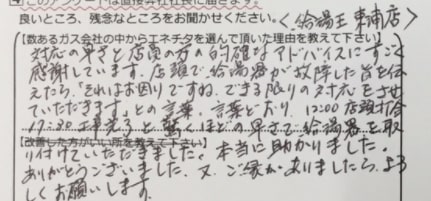 このアンケートは直接弊社社長に届きます。
良いところ、残念なところをお聞かせください。<給湯王 東南店>
【数あるガス会社の中からエネチタを選んで頂いた理由を教えて下さい】
対応の早さと店員の方の的確なアドバイスにすごく
感謝しています。店頭で給湯器が故障した旨を伝
えたら、「それはお困りですね。できる限りの対応をさせ
ていただきます。」との言葉。言葉どおり、12:00 店頭打合
17:30 工事完了と驚くほどの早さで給湯器を取
【改善した方がいい所を教えて下さい】
り付けていただきました。本当に助かりました。
ありがとうございました。又、ご縁がありましたら、よろ
しくお願いします。